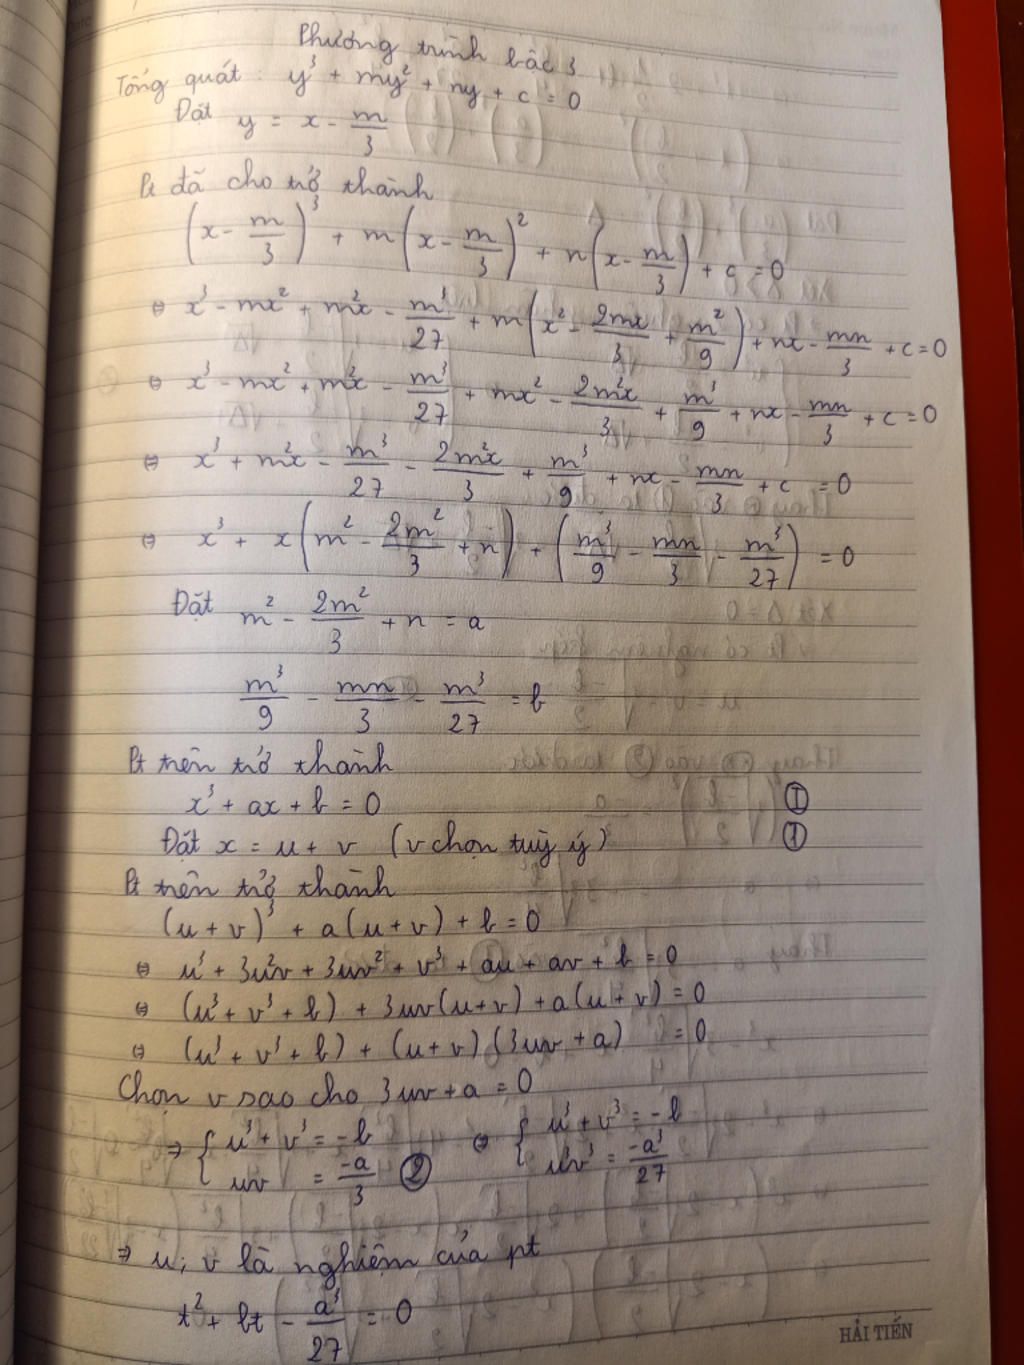 Phương trình bậc 3
Tổng quát: y³ + my² + ny + c = 0
Đặt y = x - m/3
Pt đã cho trở thành
(x - m/3)³ + m(x - m/3)² + n(x - m/3) + c = 0
⇔ x³ - mx² + m²x - m³/27 + m(x² - 2mx/3 + m²/9) + nx - mn/3 + c = 0
⇔ x³ - mx² + m²x - m³/27 + mx² - 2m²x/3 + m³/9 + nx - mn/3 + c = 0
⇔ x³ + m²x - m³/27 - 2m²x/3 + m³/9 + nx - mn/3 + c = 0
⇔ x³ + x(m² - 2m²/3 + n) + (m³/9 - mn/3 - m³/27) = 0
Đặt m² - 2m²/3 + n = a
m³/9 - mn/3 - m³/27 = b
Pt trên trở thành
x³ + ax + b = 0 Ⓘ
Đặt x = u + v (v chọn tuỳ ý) ①
Pt trên trở thành
(u + v)³ + a(u + v) + b = 0
⇔ u³ + 3u²v + 3uv² + v³ + au + av + b = 0
⇔ (u³ + v³ + b) + 3uv(u + v) + a(u + v) = 0
⇔ (u³ + v³ + b) + (u + v)(3uv + a) = 0
Chọn v sao cho 3uv + a = 0
⇒ { u³ + v³ = -b ⇔ { u³ + v³ = -b
uv = -a/3 ② u³v³ = -a³/27
⇒ u; v là nghiệm của pt
t² + bt - a³/27 = 0
HẢI TIẾN